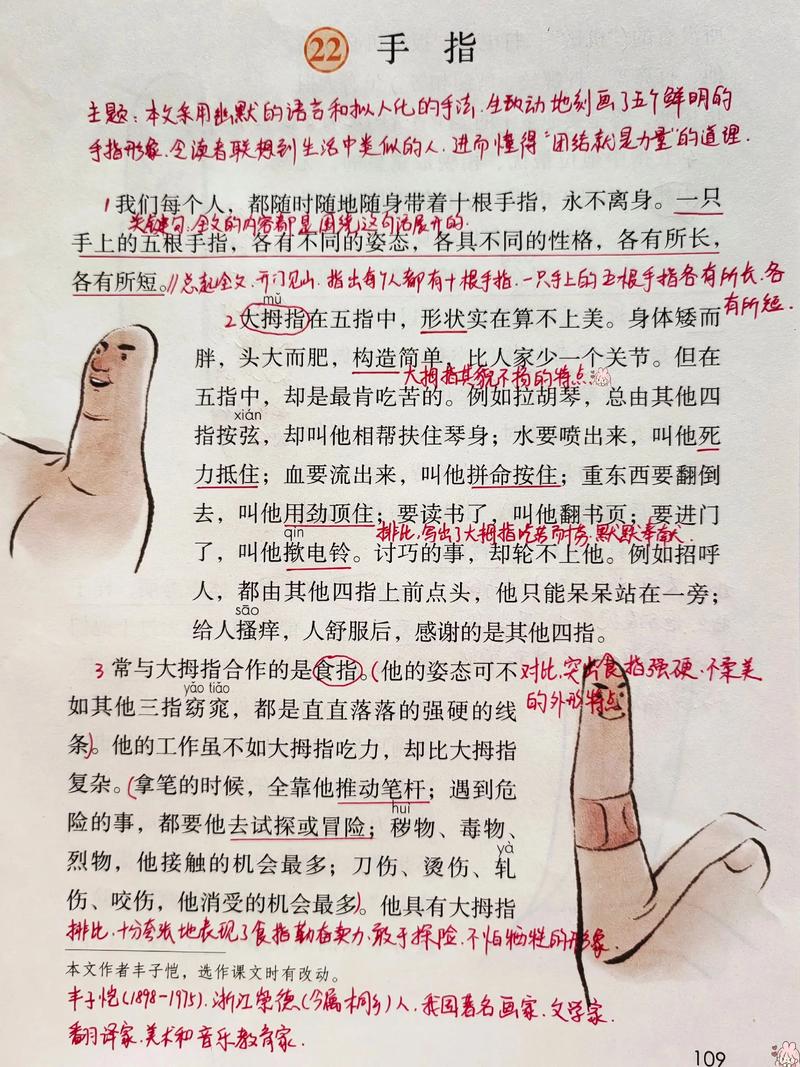 22 手指
主题：本文采用幽默的语言和拟人化的手法，生动地刻画了五个鲜明的
手指形象，令读者联想到生活中类似的人，进而懂得"团结就是力量"的道理．
1我们每个人，都随时随地随身带着十根手指，永不离身。一只
关键句，全文的内容都是围绕这句话展开的．
手上的五根手指，各有不同的姿态，各具不同的性格，各有所长，
各有所短。//总起全文，开门见山，指出每个人都有十根手指，一只手上的五根手指各有所长，各
有所短．
mǔ
2大拇指在五指中，形状实在算不上美。身体矮而
胖，头大而肥，构造简单，比人家少一个关节。但在
大拇指其貌不扬的特点
五指中，却是最肯吃苦的。例如拉胡琴，总由其他四
xián
指按弦，却叫他相帮扶住琴身；水要喷出来，叫他死
力抵住；血要流出来，叫他拼命按住；重东西要翻倒
去，叫他用劲顶住；要读书了，叫他翻书页；要进门
排比，写出了大拇指吃苦耐劳，默默奉献．
qìn
了，叫他揿电铃。讨巧的事，却轮不上他。例如招呼
人，都由其他四指上前点头，他只能呆呆站在一旁；
sāo
给人搔痒，人舒服后，感谢的是其他四指。
3常与大拇指合作的是食指。(他的姿态可不
对比，突出食指强硬，不柔美
的外形特点
yǎo tiǎo
如其他三指窈窕，都是直直落落的强硬的线
条)。他的工作虽不如大拇指吃力，却比大拇指
复杂。(拿笔的时候，全靠他推动笔杆；遇到危
huì
险的事，都要他去试探或冒险；秽物、毒物、
yà
烈物，他接触的机会最多；刀伤、烫伤、轧
伤、咬伤，他消受的机会最多)。他具有大拇指
排比，十分夸张地表现了食指勤奋卖力，敢于探险，不怕牺牲的形象．
本文作者丰子恺，选作课文时有改动。
丰子恺(1898-1975)，浙江崇德(今属桐乡)人，我国著名画家、文学家、
翻译家、美术和音乐教育家．
109